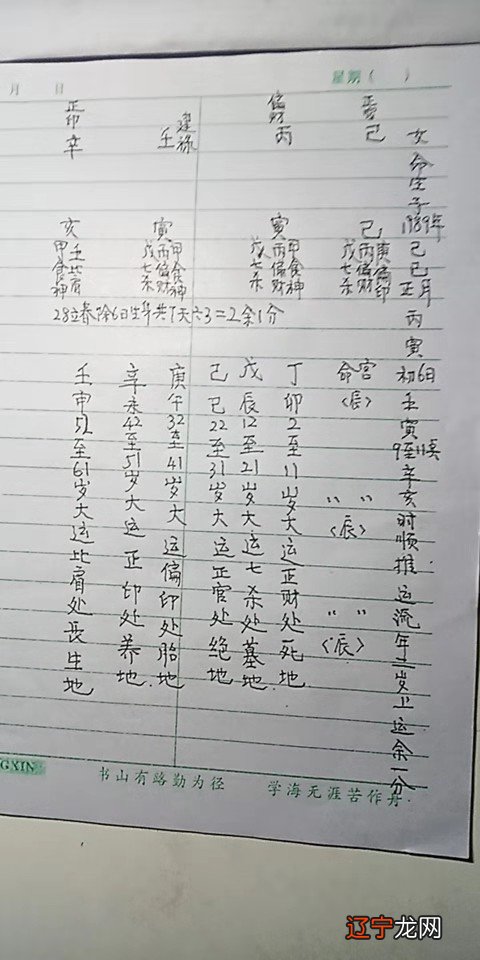 月 日 星期( )
命生于1989年己巳正月丙寅初6日壬寅9至11点辛亥时顺推运流年二岁上运余一分
己
巳
庚偏印
丙偏财
戊七杀
偏财
丙
寅
甲食神
丙偏财
戊七杀
建禄
壬
寅
甲食神
丙偏财
戊七杀
正印
辛
亥
壬
甲食神
28立春除6日生年共7天六3=2余1分
命宫〈辰〉
〃〃〈辰〉
〃〃〈辰〉
丁卯2至11岁大运正财处死地.
戊辰12至21岁大运七杀处墓地.
己巳22至31岁大运正官处绝地
庚午32至41岁大运偏印处胎地
辛未42至51岁大运正印处养地.
壬申52至61岁大运比肩处长生地
GXIN
书山有路勤为径 学海无涯苦作舟
辽宁龙网